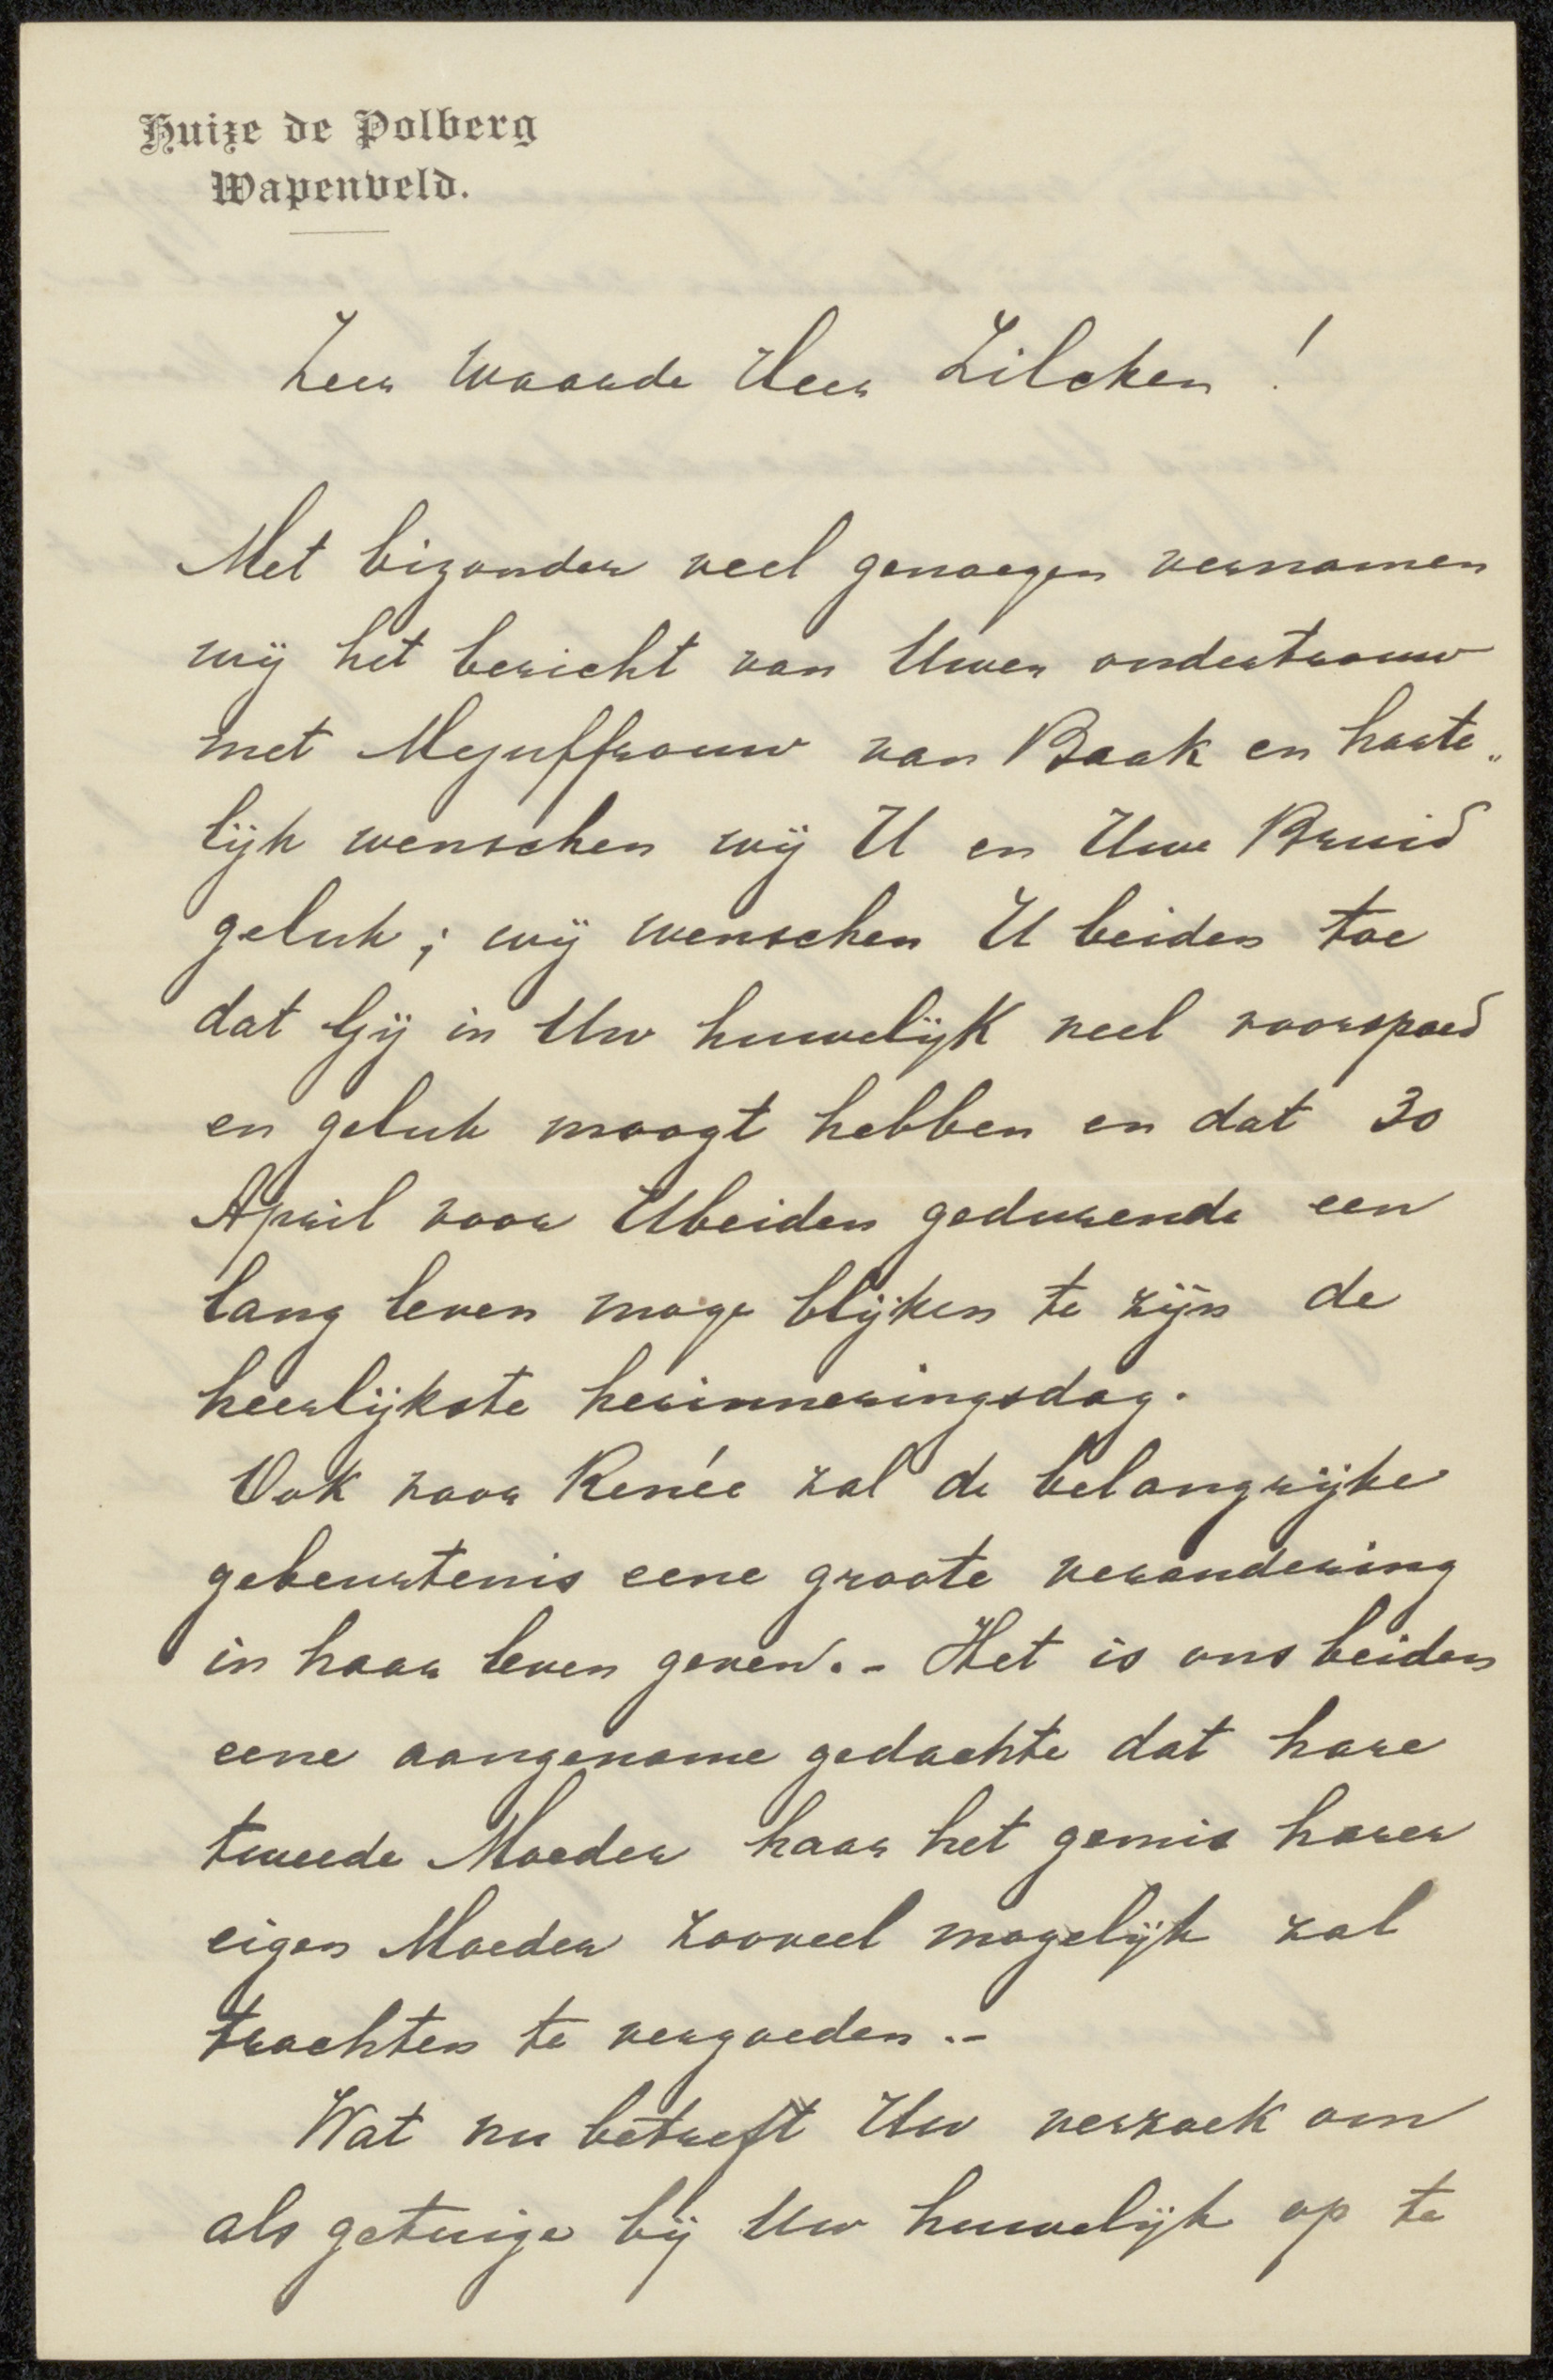 Huize de Polberg
Wapenveld.
Zeer Waarde Heer Zilcken !
Met bizonder veel genoegen vernamen
wij het bericht van Uwen ondertrouw
met Mejuffrouw van Baak en harte„
lijk wenschen wij U en Uwe Bruid
geluk ; wij wenschen U beiden toe
dat Gij in Uw huwelijk veel voorspoed
en geluk moogt hebben en dat 30
April voor U beiden gedurende een
lang leven moge blijken te zijn de
heerlijkste herinneringsdag.
Ook voor Renée zal de belangrijke
gebeurtenis eene groote verandering
in haar leven geven. - Het is ons beiden
eene aangename gedachte dat hare
tweede Moeder haar het gemis harer
eigen Moeder zooveel mogelijk zal
trachten te vergoeden . -
Wat nu betreft Uw verzoek om
als getuige bij Uw huwelijk op te